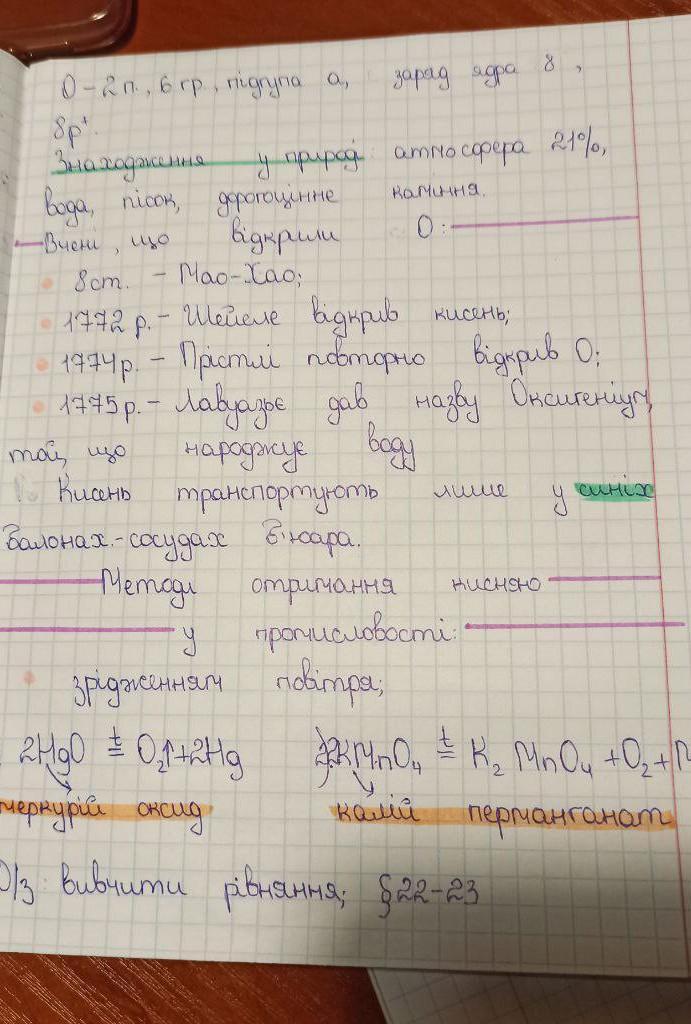 O – 2 п., 6 гр., підгупа а, заряд ядра 8,
8p⁺.
Знаходження у природі атмосфера 21%,
вода, пісок, дорогоцінне каміння.
Вчені, що відкрили О:
8 ст. – Мао-Хао;
1772 р. – Шейеле відкрив кисень;
1774 р. – Прістлі повторно відкрив О;
1775 р. – Лавуазьє дав назву Оксигеніум,
той, що народжує воду
Кисень транспортують лише у синіх
балонах.-сосудах
Методи отримання кисню
у промисловості:
зрідженням повітря;
2HgO t= O₂↑+2Hg 2KMnO₄ t= K₂MnO₄ +O₂+M
меркурій оксид калій перманганат
Д/з: вивчити рівняння; §22-23